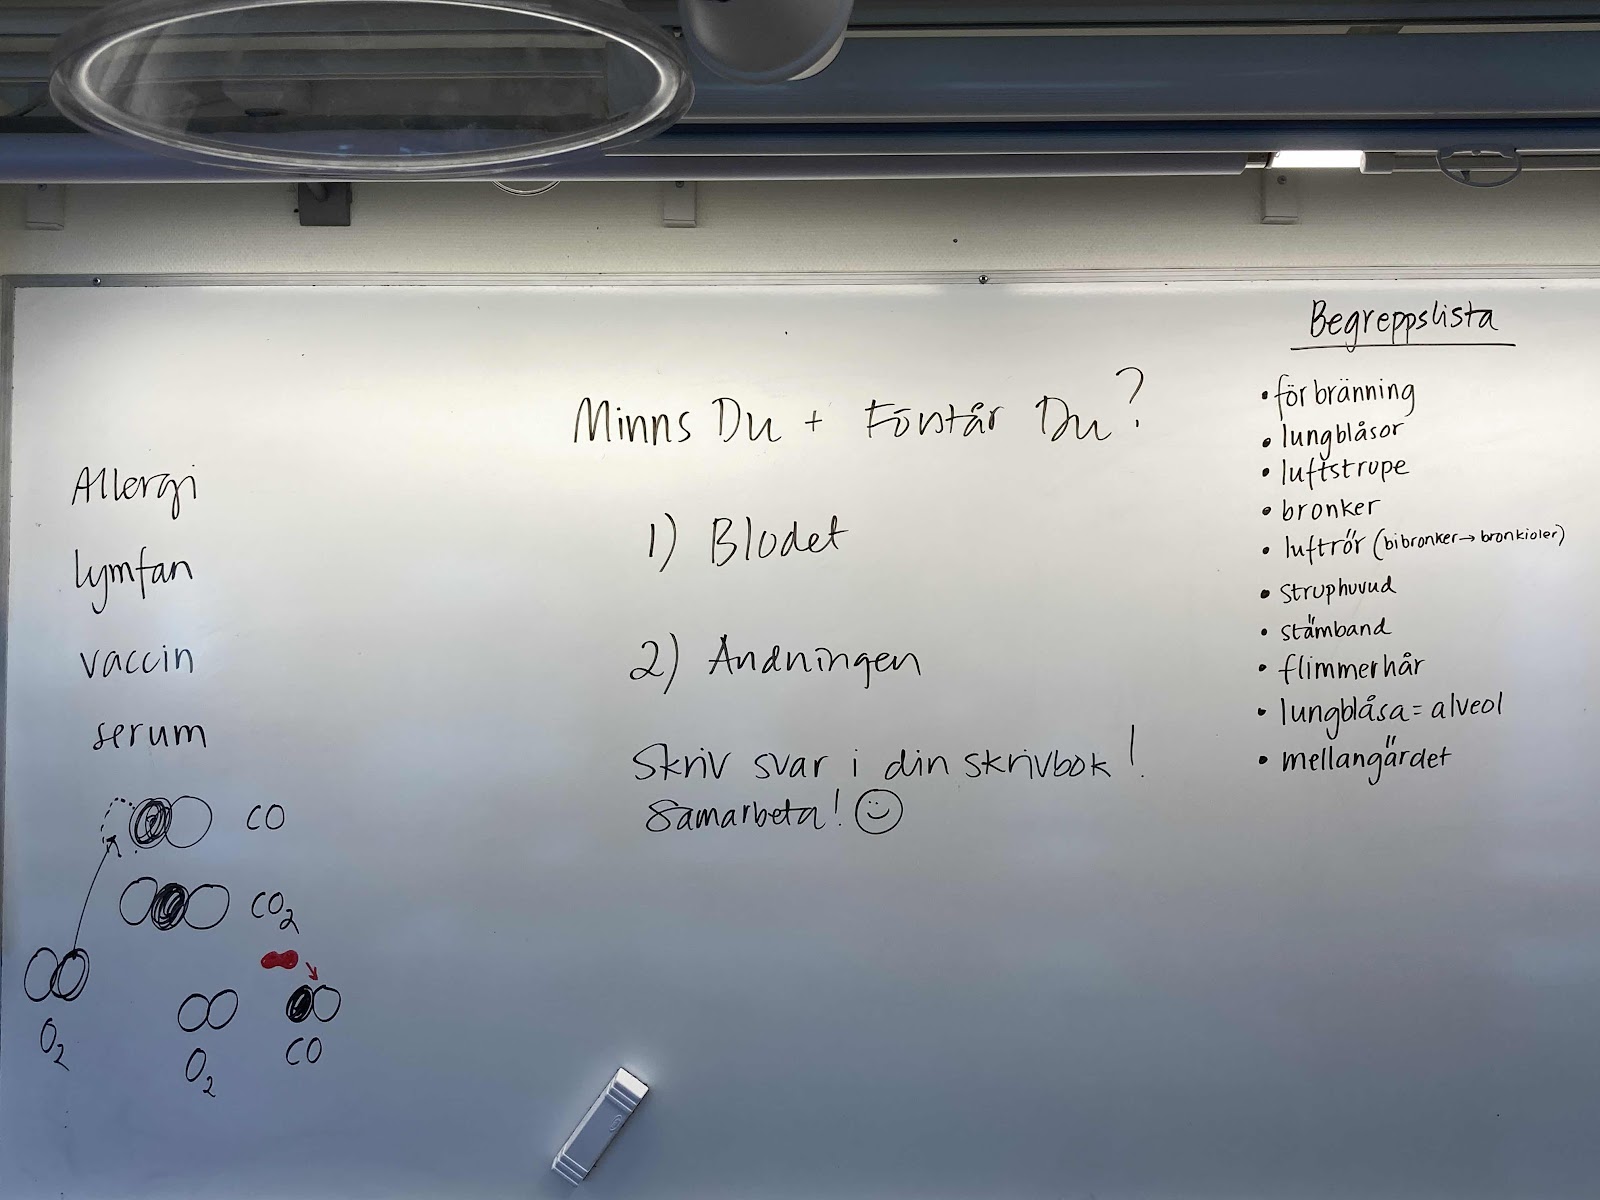 Allergi
lymfan
vaccin
serum
CO
CO2
O2
O2
CO
Minns Du + Förstår Du?
1) Blodet
2) Andningen
Skriv svar i din skrivbok!
Samarbeta! ☺
Begreppslista
• förbränning
• lungblåsor
• luftstrupe
• bronker
• luftrör (bibronker→bronkioler)
• struphuvud
• stämband
• flimmerhår
• lungblåsa = alveol
• mellangärdet